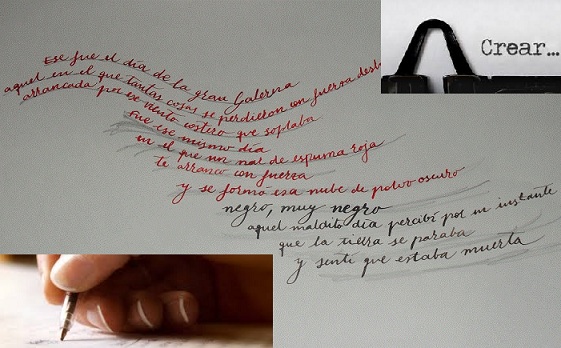 Ese fue el día de la gran Galerna
aquel en el que tantas cosas se perdieron con fuerza
arrancada por ese viento costero que soplaba
fue ese mismo día
en el que un mal de espuma roja
te arranco con fuerza
y se formó esa nube de polvo oscuro
negro, muy negro
aquel maldito día percibí por un instante
que la tierra se paraba
y sentí que estaba muerta
Crear...